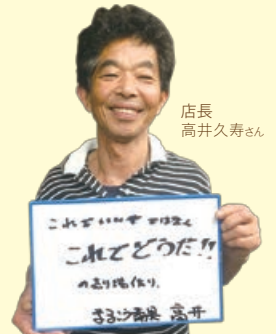 店長
高井久寿さん
これでいいや ではなく
これでどうだ!!
の売り場作り。
まるこう青果 高井